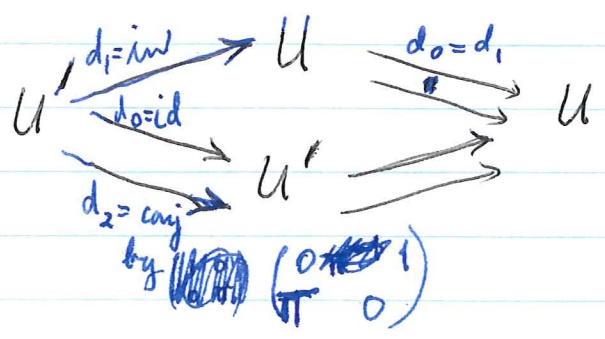 d₁=inv U d₀=d₁
U′ d₀=id U
U′
d₂=conj
by (0 1
π 0)